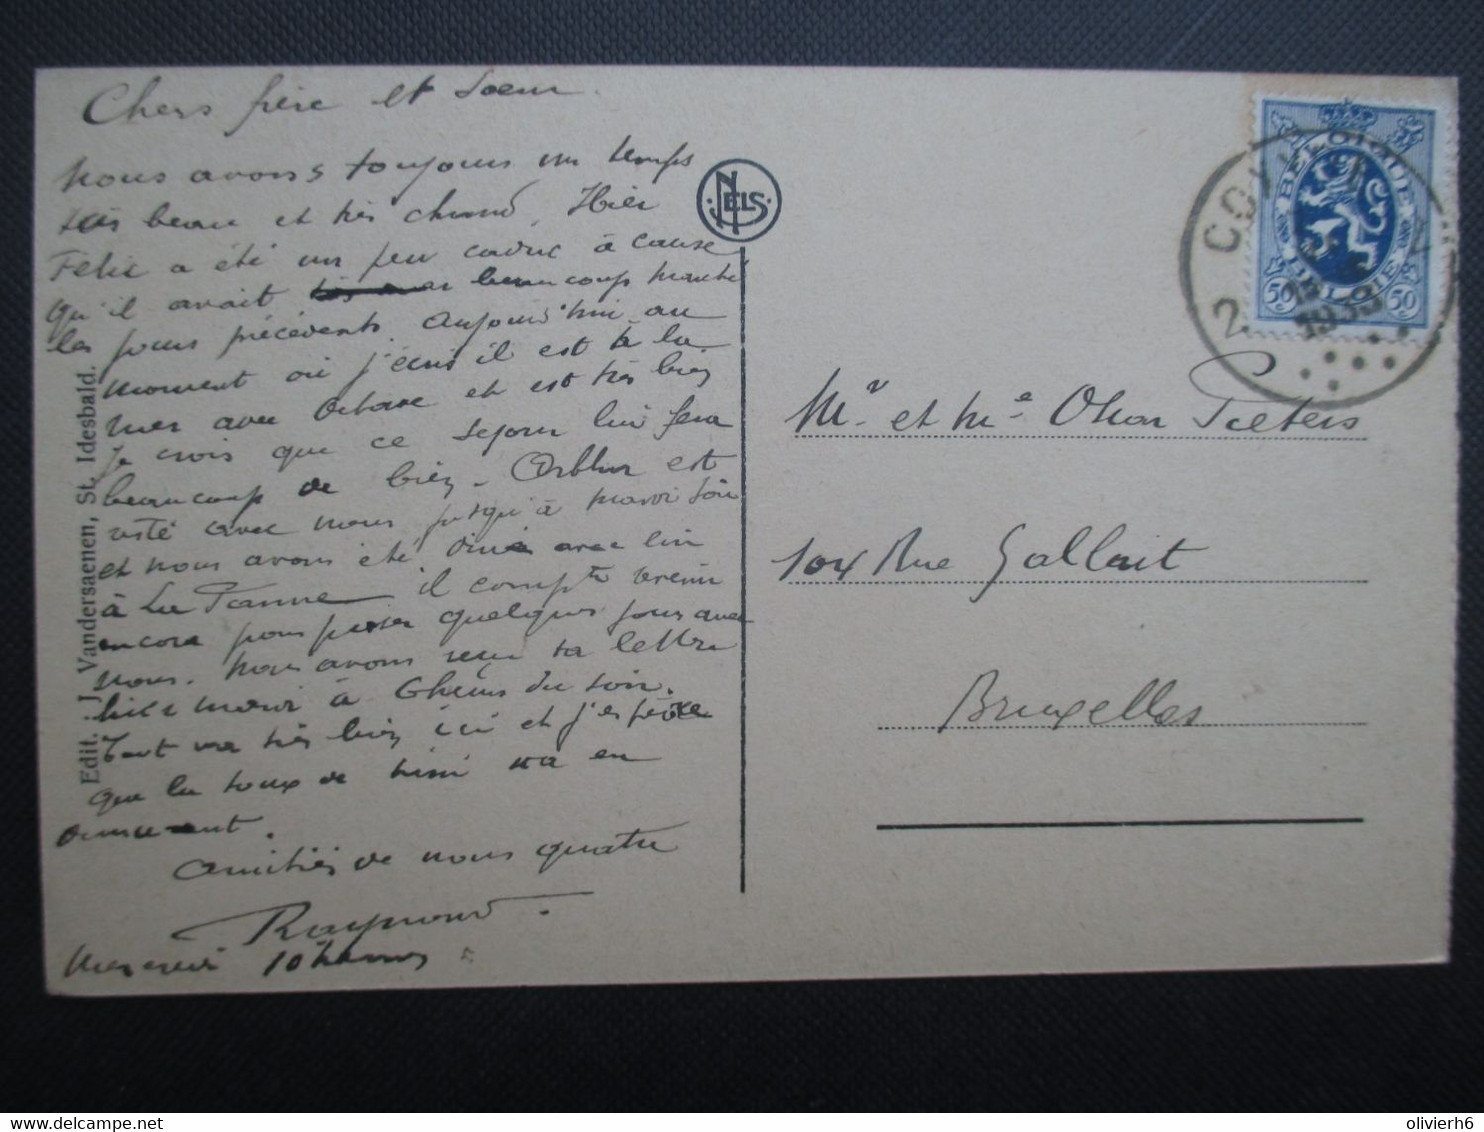 Chers frère et Soeur.
Nous avons toujours un temps
très beau et très chaud. Hier
Félix a été un peu à cause
qu'il avait beaucoup marché
les jours précédents. Aujourd'hui au
moment où j'écris il est à la
mer avec et est très bien
Je crois que ce séjour lui fera
beaucoup de bien. Arthur est
resté avec nous jusqu'à mardi soir
et nous avons été avec lui
à La Panne il compte venir
encore pour passer quelques jours avec
nous. Nous avons reçu ta lettre
hier mardi à du soir.
Tout va très bien ici et j'espère
que la toux de va en
amitiés de nous quatre
Raymond.
Mercredi 10 heures
Edit. J. Vandersaenen, St. Idesbald.
NELS
BELGIQUE
BELGIE
50 50
COX
2
15
1933
Mr. et Me Oscar Pieters
104 Rue Gallait
Bruxelles
olivierh6
delcampe.net